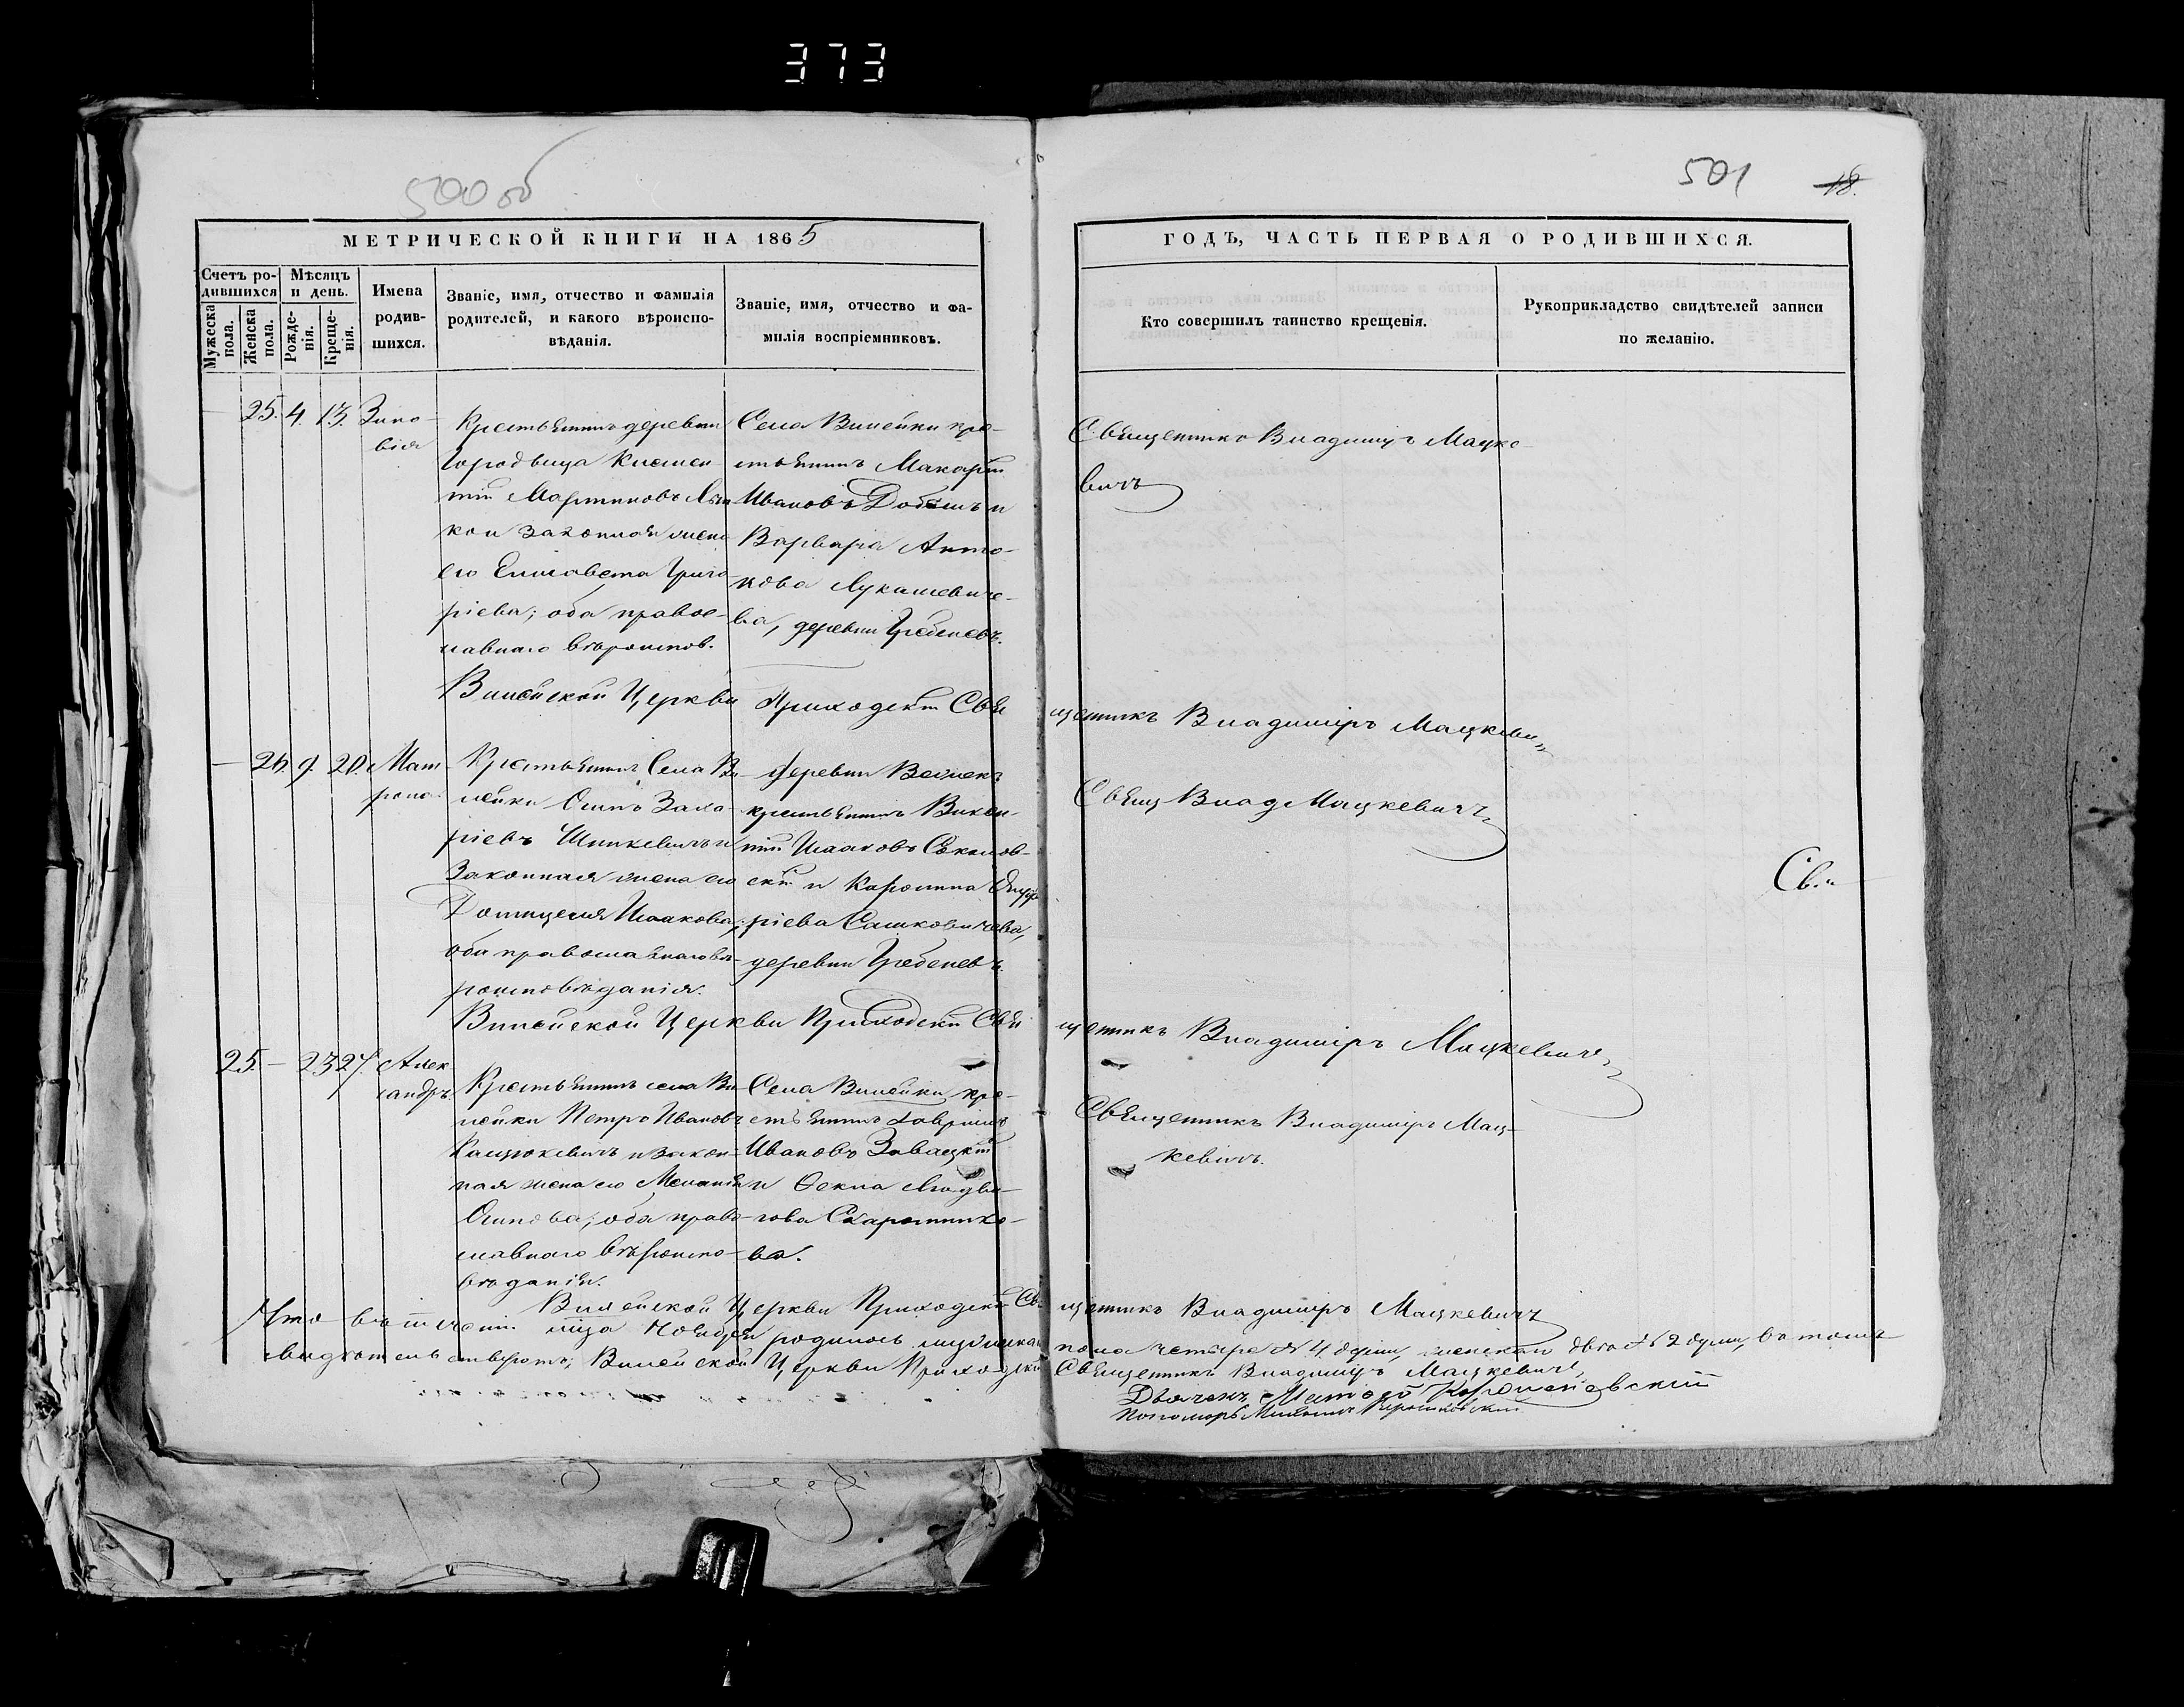 373
500 об
501
18.
МЕТРИЧЕСКОЙ КНИГИ НА 1865
ГОДЪ, ЧАСТЬ ПЕРВАЯ О РОДИВШИХСЯ.
Счетъ ро-
дившихся
Мужеска
пола.
Женска
пола.
Мѣсяцъ
и день.
Рожде-
нія.
Креще-
нія.
Имена
родив-
шихся.
Званіе, имя, отчество и фамилія
родителей, и какого вѣроиспо-
вѣданія.
Званіе, имя, отчество и фа-
милія воспріемниковъ.
Кто совершилъ таинство крещенія.
Рукоприкладство свидѣтелей записи
по желанію.
— 25. 4. 13.
Зино-
вія
Крестьянинъ деревни
Городища Климен-
тій Мартиновъ
кои законная жена
его Елисавета Григо-
ріева; оба право-
славнаго вѣроиспов.
Села Вилейки кре-
стьянинъ Макарій
Ивановъ и
Варвара Анто-
нова Лукашевиче-
ва, деревни Гребеневъ.
Священникъ Владиміръ Мацке-
вичъ
Вилейской Церкви Приходскій Свя
щенникъ Владиміръ Мацкеви
— 26. 9. 20.
Мат
рона
Крестьянинъ Села Ви-
лейки Осипъ Заха-
ріевъ Шинкевичъ и
Законная жена его
Домицеля Исаакова,
оба православнаго вѣ-
роисповѣданія.
деревни
крестьянинъ Викен-
тій Исааковъ
скій и Каролина
ріева Сашковичева,
деревни Гребеневъ.
Свящ Влад Мацкевичъ
Св.
Вилейской Церкви Приходскій Свя
щенникъ Владиміръ Мацкевичъ
25. — 23 27.
Алек
сандръ.
Крестьянинъ села Ви
лейки Петръ Ивановъ
и закон-
ная жена его Меланія
Осипова; оба право-
славнаго вѣроиспо-
вѣданія.
Села Вилейки кре-
стьянинъ Гавріилъ
Ивановъ Завацкій
и Ѳекла Людви-
гова
ва.
Священникъ Владиміръ Мац-
кевичъ.
Вилейской Церкви Приходскій Св
щенникъ Владиміръ Мацкевичъ
Что въ теченіи мца Ноября родилось мужеска
пола четыре № 4 души, женскаго два № 2 души, въ томъ
свидѣтельствуютъ; Вилейской Церкви Приходскій
Священникъ Владиміръ Мацкевичъ
Дьячекъ
Пономарь